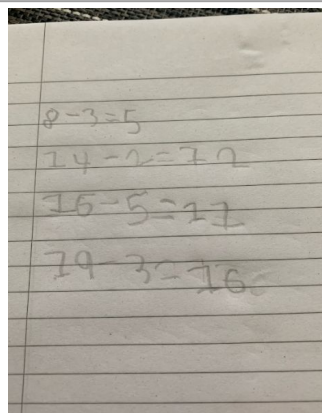 8-3=5
14-2=12
16-5=11
19-3=16